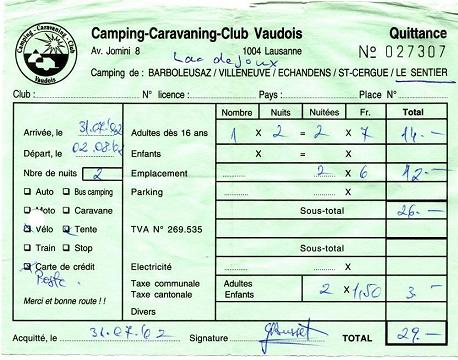 Camping - Caravaning - Club
Vaudois
Camping-Caravaning-Club Vaudois
Quittance
Av. Jomini 8
1004 Lausanne
Nº 027307
Lac de Joux
Camping de : BARBOLEUSAZ / VILLENEUVE / ECHANDENS / ST-CERGUE / LE SENTIER
Club : N° licence : Pays : Place N°
Nombre Nuits Nuitées Fr. Total
Arrivée, le 31.07.02 Adultes dès 16 ans 1 X 2 = 2 X 7 14.—
Départ, le 02.08.02 Enfants X = X
Nbre de nuits 2 Emplacement 2 X 6 12.—
Auto Bus camping Parking X
Moto Caravane Sous-total 26.—
Vélo Tente TVA N° 269.535
Train Stop Sous-total
Carte de crédit Electricité X
Poste
Taxe communale Adultes 2 X 1,50 3.—
Taxe cantonale Enfants
Merci et bonne route !!
Divers
Acquitté, le 31.07.02 Signature TOTAL 29.—